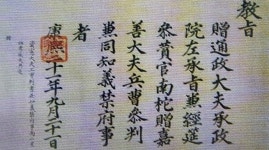 教旨
贈通政大夫承政
院左承旨兼經筵
參贊官南柁贈嘉
善大夫兵曹參判
兼同知義禁府事
者
康熙二十一年九月二十日